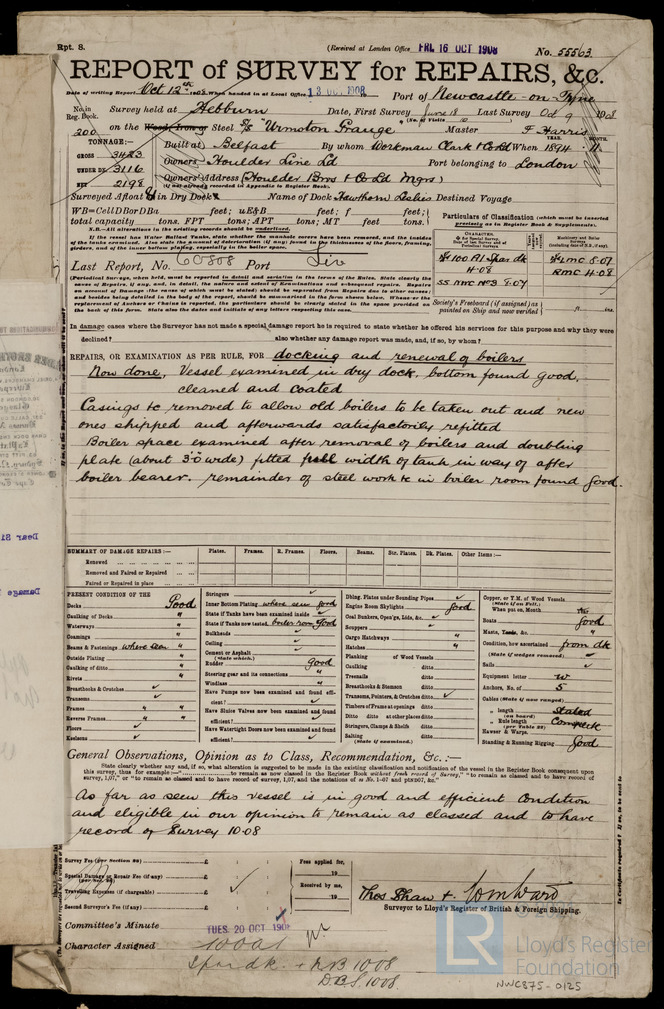 Rpt. 8.
(Received at London Office FRI. 16 OCT 1908
No. 55563
REPORT of SURVEY for REPAIRS, &c.
Date of writing Report Oct 12th 1908 When handed in at Local Office 13 OCT 1908 Port of Newcastle-on-Tyne
No. in Reg. Book. Survey held at Hebburn Date, First Survey June 18 Last Survey Oct 9 1908
(No. of Visits 10)
200 on the Wood, Iron or Steel S/S "Urmston Grange" Master F. Harris
TONNAGE:— Built at Belfast By whom Workman Clark & Co Ld When 1894 . 11
YEAR. MONTH.
GROSS 3423
UNDER DK. 3116
NET 2198
Owners Houlder Line Ld Port belonging to London
Owners' Address (Houlder Bros & Co Ld Mgrs)
(if not already recorded in Appendix to Register Book.)
Surveyed Afloat & in Dry Dock Name of Dock Hawthorn Leslies Destined Voyage
WB=CellDBorDBa feet; uE&B feet; f feet;
total capacity tons. FPT tons; APT tons; MT feet tons.
N.B.—All alterations in the existing records should be underlined.
Last Report, No. 60808 Port Liv
Particulars of Classification (which must be inserted precisely as in Register Book & Supplements).
100 A1 Spar dk
4.08
SS NWC No3 5.07
LMC 5.07
BMC 4.08
Society's Freeboard (if assigned) as painted on Ship and now verified ft. ins.
In damage cases where the Surveyor has not made a special damage report he is required to state whether he offered his services for this purpose and why they were
declined? also whether any damage report was made, and if so, by whom?
REPAIRS, OR EXAMINATION AS PER RULE, FOR docking and renewal of boilers
Now done, Vessel examined in dry dock, bottom found good,
cleaned and coated
Casings &c removed to allow old boilers to be taken out and new
ones shipped and afterwards satisfactorily refitted
Boiler space examined after removal of boilers and doubling
plate (about 3'0" wide) fitted full width of tank in way of after
boiler bearer. remainder of steel work &c in boiler room found good.
SUMMARY OF DAMAGE REPAIRS:— Plates. Frames. R. Frames. Floors. Beams. Str. Plates. Dk. Plates. Other Items:—
Renewed
Removed and Faired or Repaired
Faired or Repaired in place
PRESENT CONDITION OF THE
Decks Good
Caulking of Decks "
Waterways "
Coamings "
Beams & Fastenings where seen "
Outside Plating "
Caulking of ditto "
Rivets "
Breasthooks & Crutches ✓
Transoms ✓
Frames " "
Reverse Frames " "
Floors ✓
Keelsons ✓
Stringers ✓
Inner Bottom Plating where seen good
State if Tanks have been examined inside ✓
State if Tanks now tested, boiler room Good
Bulkheads ✓
Ceiling ✓
Cement or Asphalt ✓
(State which.)
Rudder Good
Steering gear and its connections "
Windlass "
Have Pumps now been examined and found efficient? ✓
Have Sluice Valves now been examined and found efficient? ✓
Have Watertight Doors now been examined and found efficient? ✓
Dblng. Plates under Sounding Pipes ✓
Engine Room Skylights Good
Coal Bunkers, Open'gs, Lids, &c. ✓
Scuppers ✓
Cargo Hatchways "
Hatches "
Planking of Wood Vessels
Caulking ditto
Treenails ditto
Breasthooks & Stemson ditto
Transoms, Pointers, & Crutches ditto ✓
Timbers of Frame at openings ditto
Ditto ditto at other places ditto
Stringers, Clamps & Shelfs ditto
Salting ditto
(State if examined.)
Copper, or Y.M. of Wood Vessels
(State if on Felt.)
When put on, Month
Boats Good
Masts, Yards, &c. "
Condition, how ascertained from dk
(State if wedges removed.) ✓
Sails ✓
Equipment letter W
Anchors, No. of 5
Cables (State if now ranged)
" length stated
(on board)
" Rule length Complete
(per Table 22)
Hawser & Warps.
Standing & Running Rigging Good
General Observations, Opinion as to Class, Recommendation, &c.:—
State clearly whether any, and if so, what alteration is suggested to be made in the existing classification and notation of the vessel in the Register Book consequent upon
As far as seen this vessel is in good and efficient condition
and eligible in our opinion to remain as classed and to have
record of Survey 10.08
Survey Fee (per Section 28) £
Special Damage or Repair Fee (if any) £
(per Sec. 28)
Travelling Expenses (if chargeable) £
Second Surveyor's Fee (if any) £
Fees applied for,
19
Received by me,
19
Thos Shaw + Wm Ward
Surveyor to Lloyd's Register of British & Foreign Shipping.
Committee's Minute TUES. 20 OCT 1908
Character Assigned 100A1
Spar dk. + NB 10.08
DBS. 10.08.
LR
Lloyd's Register
Foundation
NWC875-0125